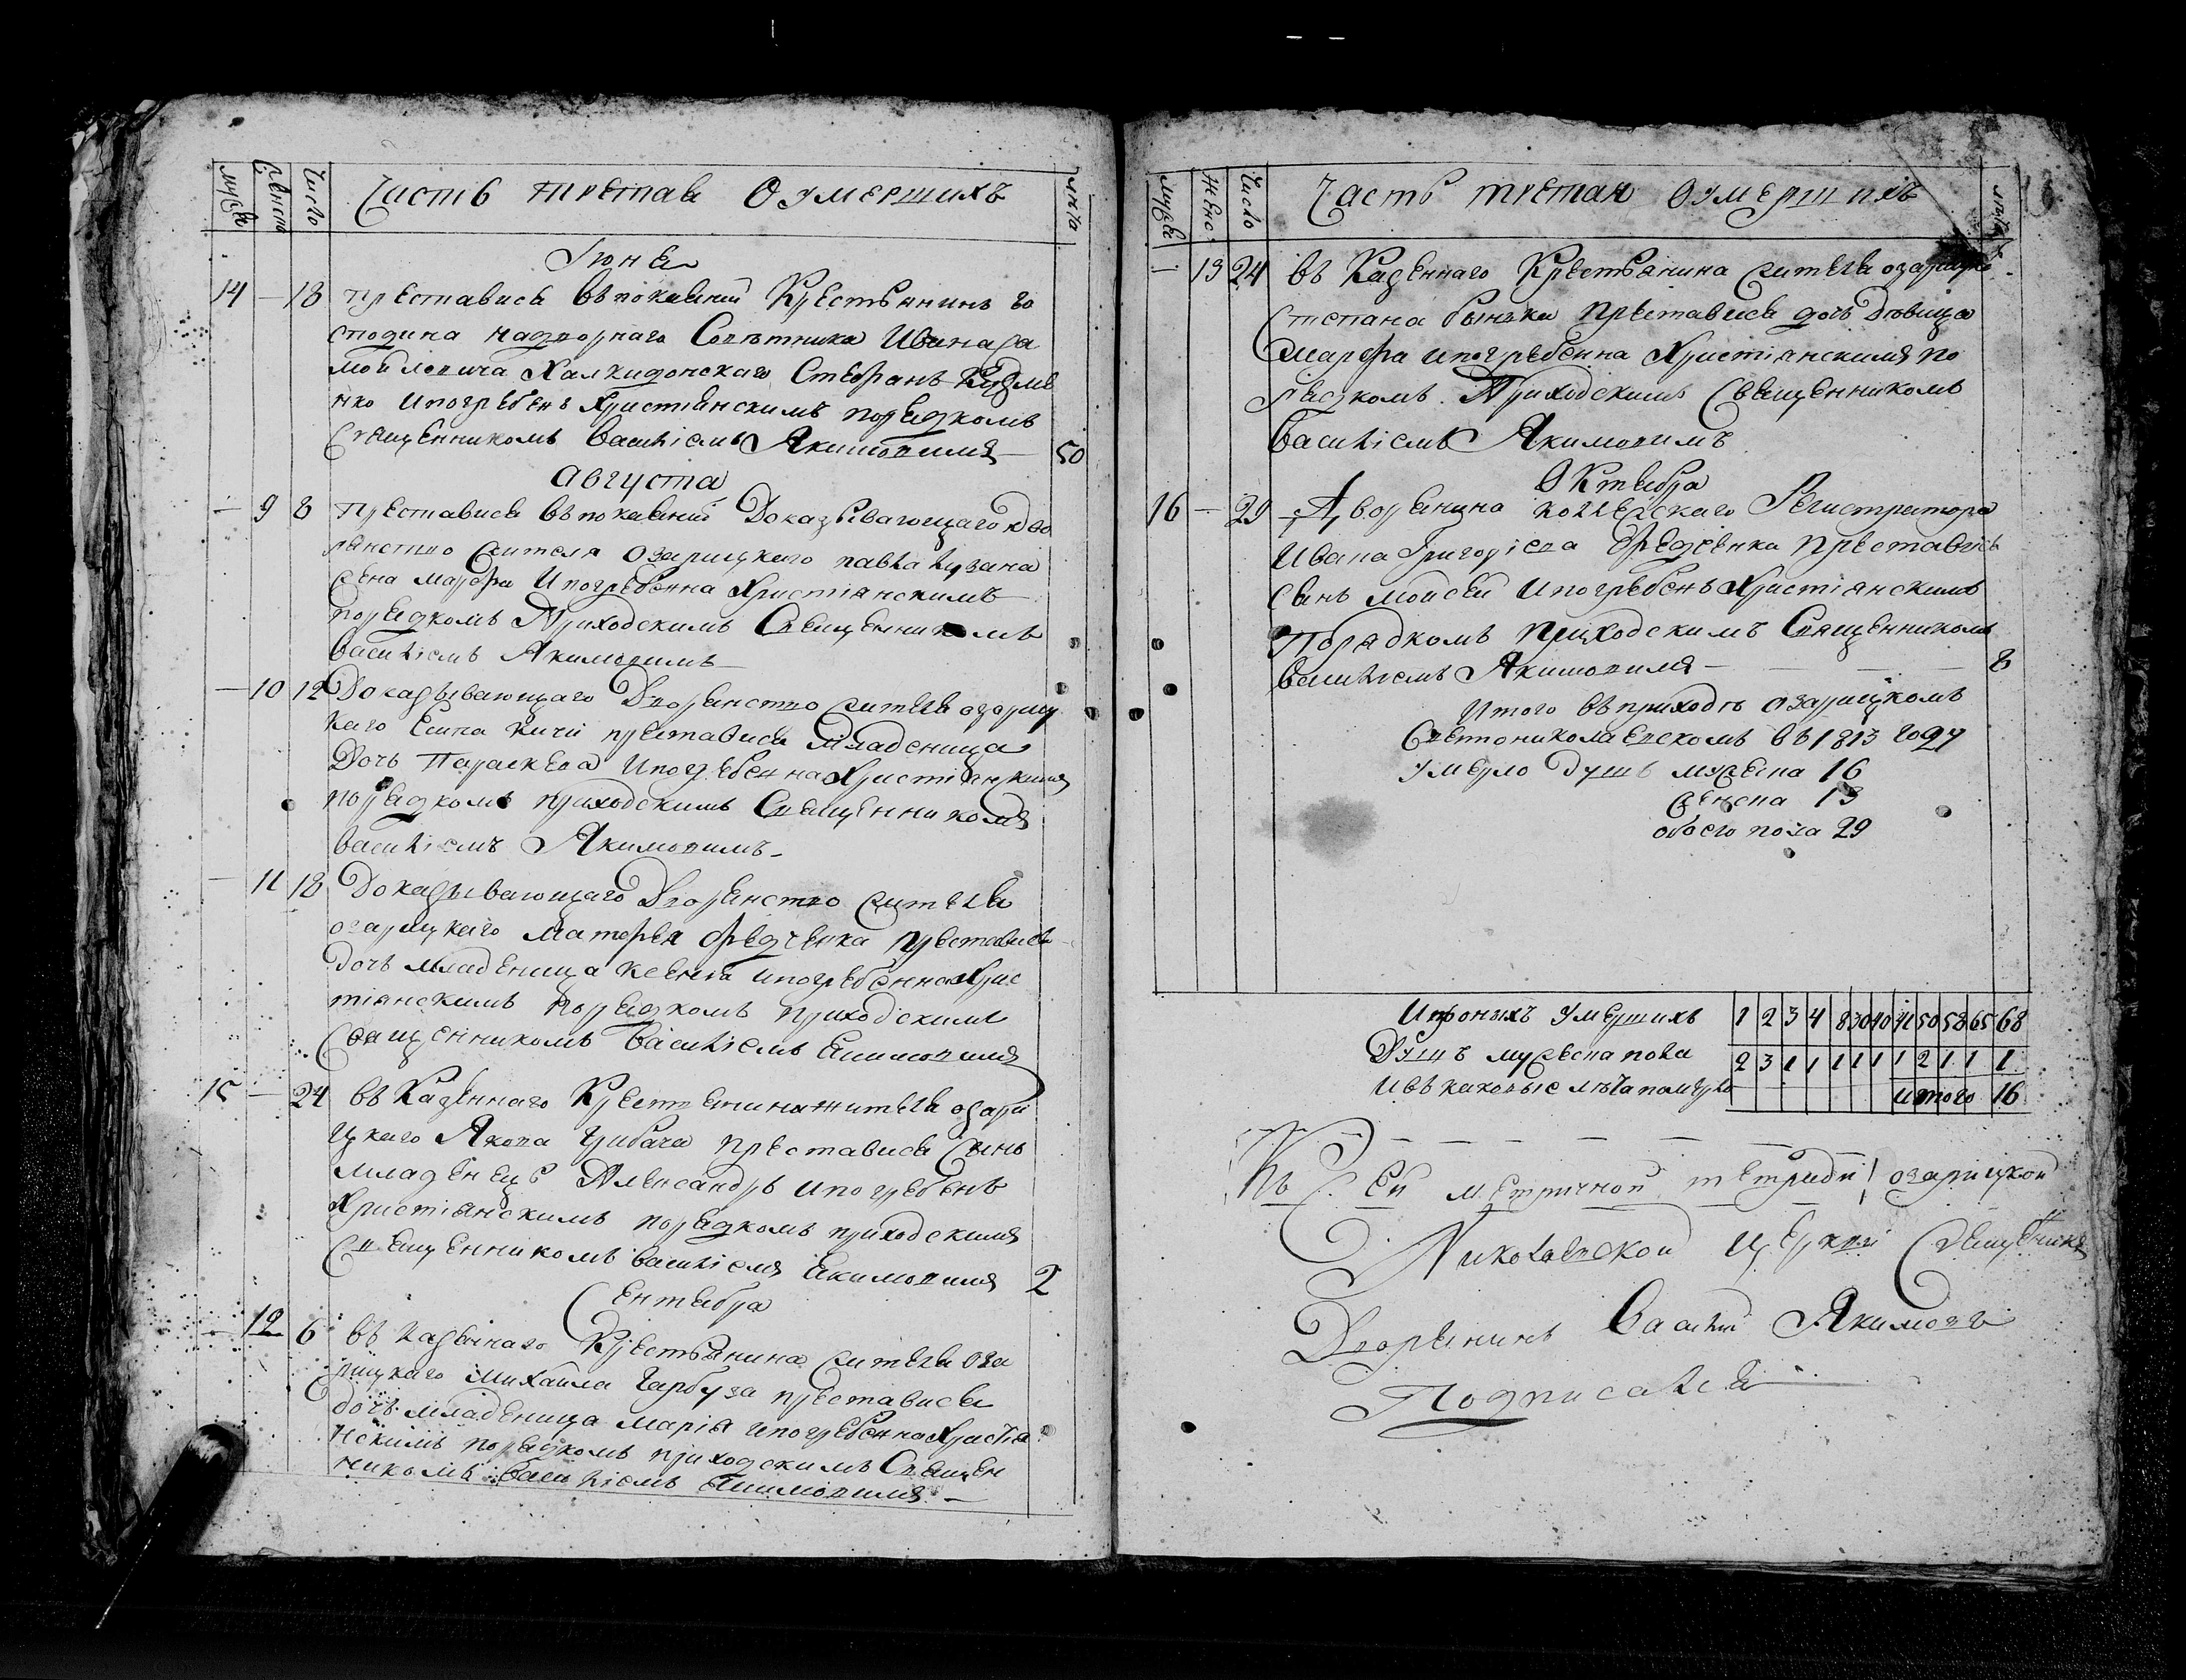 мужск
женска
Число
Часть третая О умершихъ
лѣта
Іюня
14 — 18 преставися въ покаяніи Крестьянинъ го
сподина надворнаго Совѣтника Ивана са
мойловича Халкидонскаго Стефанъ Кузме
нко и погребенъ Христіянскимъ порядкомъ
Священникомъ Василіемъ Якимовимъ — 50
Августа
— 9 8 преставися въ покаяніи Доказывающаго дво
рянство жителя озарицкаго павла
жена марфа и погребенна Христіянскимъ
порядкомъ Приходскимъ Священникомъ
Василіемъ Якимовимъ —
— 10 12 Доказывающаго Дворянство жителя озариц
каго Есипа преставися младеница
Дочь Параскева и погребенна Христіянскимъ
порядкомъ приходскимъ Священникомъ
василіемъ Якимовимъ —
— 11 18 Доказывающаго Дворянство жителя
озарицкаго Матфея Федченка преставися
дочь младеница Ксенія и погребенна Хрис
тіянскимъ порядкомъ приходскимъ
Священникомъ Василіемъ Якимовимъ
15 — 24 въ Казеннаго Крестянина жителя озари
цкаго Якова Грибача преставися сынъ
младенецъ Александръ и погребенъ
Христіянскимъ порядкомъ приходскимъ
Священникомъ василіемъ Якимовимъ 2
Сентября
— 12 6 въ казеннаго Крестьянина жителя оза
рицкаго Михаила Гарбуза преставися
дочь младеница марія и погребенна Христія
нскимъ порядкомъ приходскимъ Священ
никомъ василіемъ Якимовимъ —
мужск
женс
Число
Часть третая О умершихъ
лѣта
— 13 24 въ Казеннаго Крестьянина жителя озарицко
Степана преставися дочь Дѣвица
Марфа и погребенна Христіянскимъ по
рядкомъ Приходскимъ Священникомъ
Василіемъ Якимовимъ
Октября
16 — 29 Дворянина колежскаго Регистратора
Ивана Григоріева Федченка преставись
сынъ Мойсей и погребенъ Христіянскимъ
Порядкомъ приходскимъ Священникомъ
василіемъ Якимовимъ — 8
Итого въ приходѣ озарицкомъ
Святониколаевскомъ въ 1813 году
умерло душъ мужеска 16
женска 13
обоего пола 29
Изъ оныхъ умершихъ 1 2 3 4 8 30 40 41 50 58 65 68
Душъ мужеска пола 2 3 1 1 1 1 1 1 2 1 1 1
и въ каковые лѣта померло итого 16
Къ Сей метричной тетради озарицкой
Николаевской церкви Священникъ
Дворянинъ Василій Якимовъ
Подписался